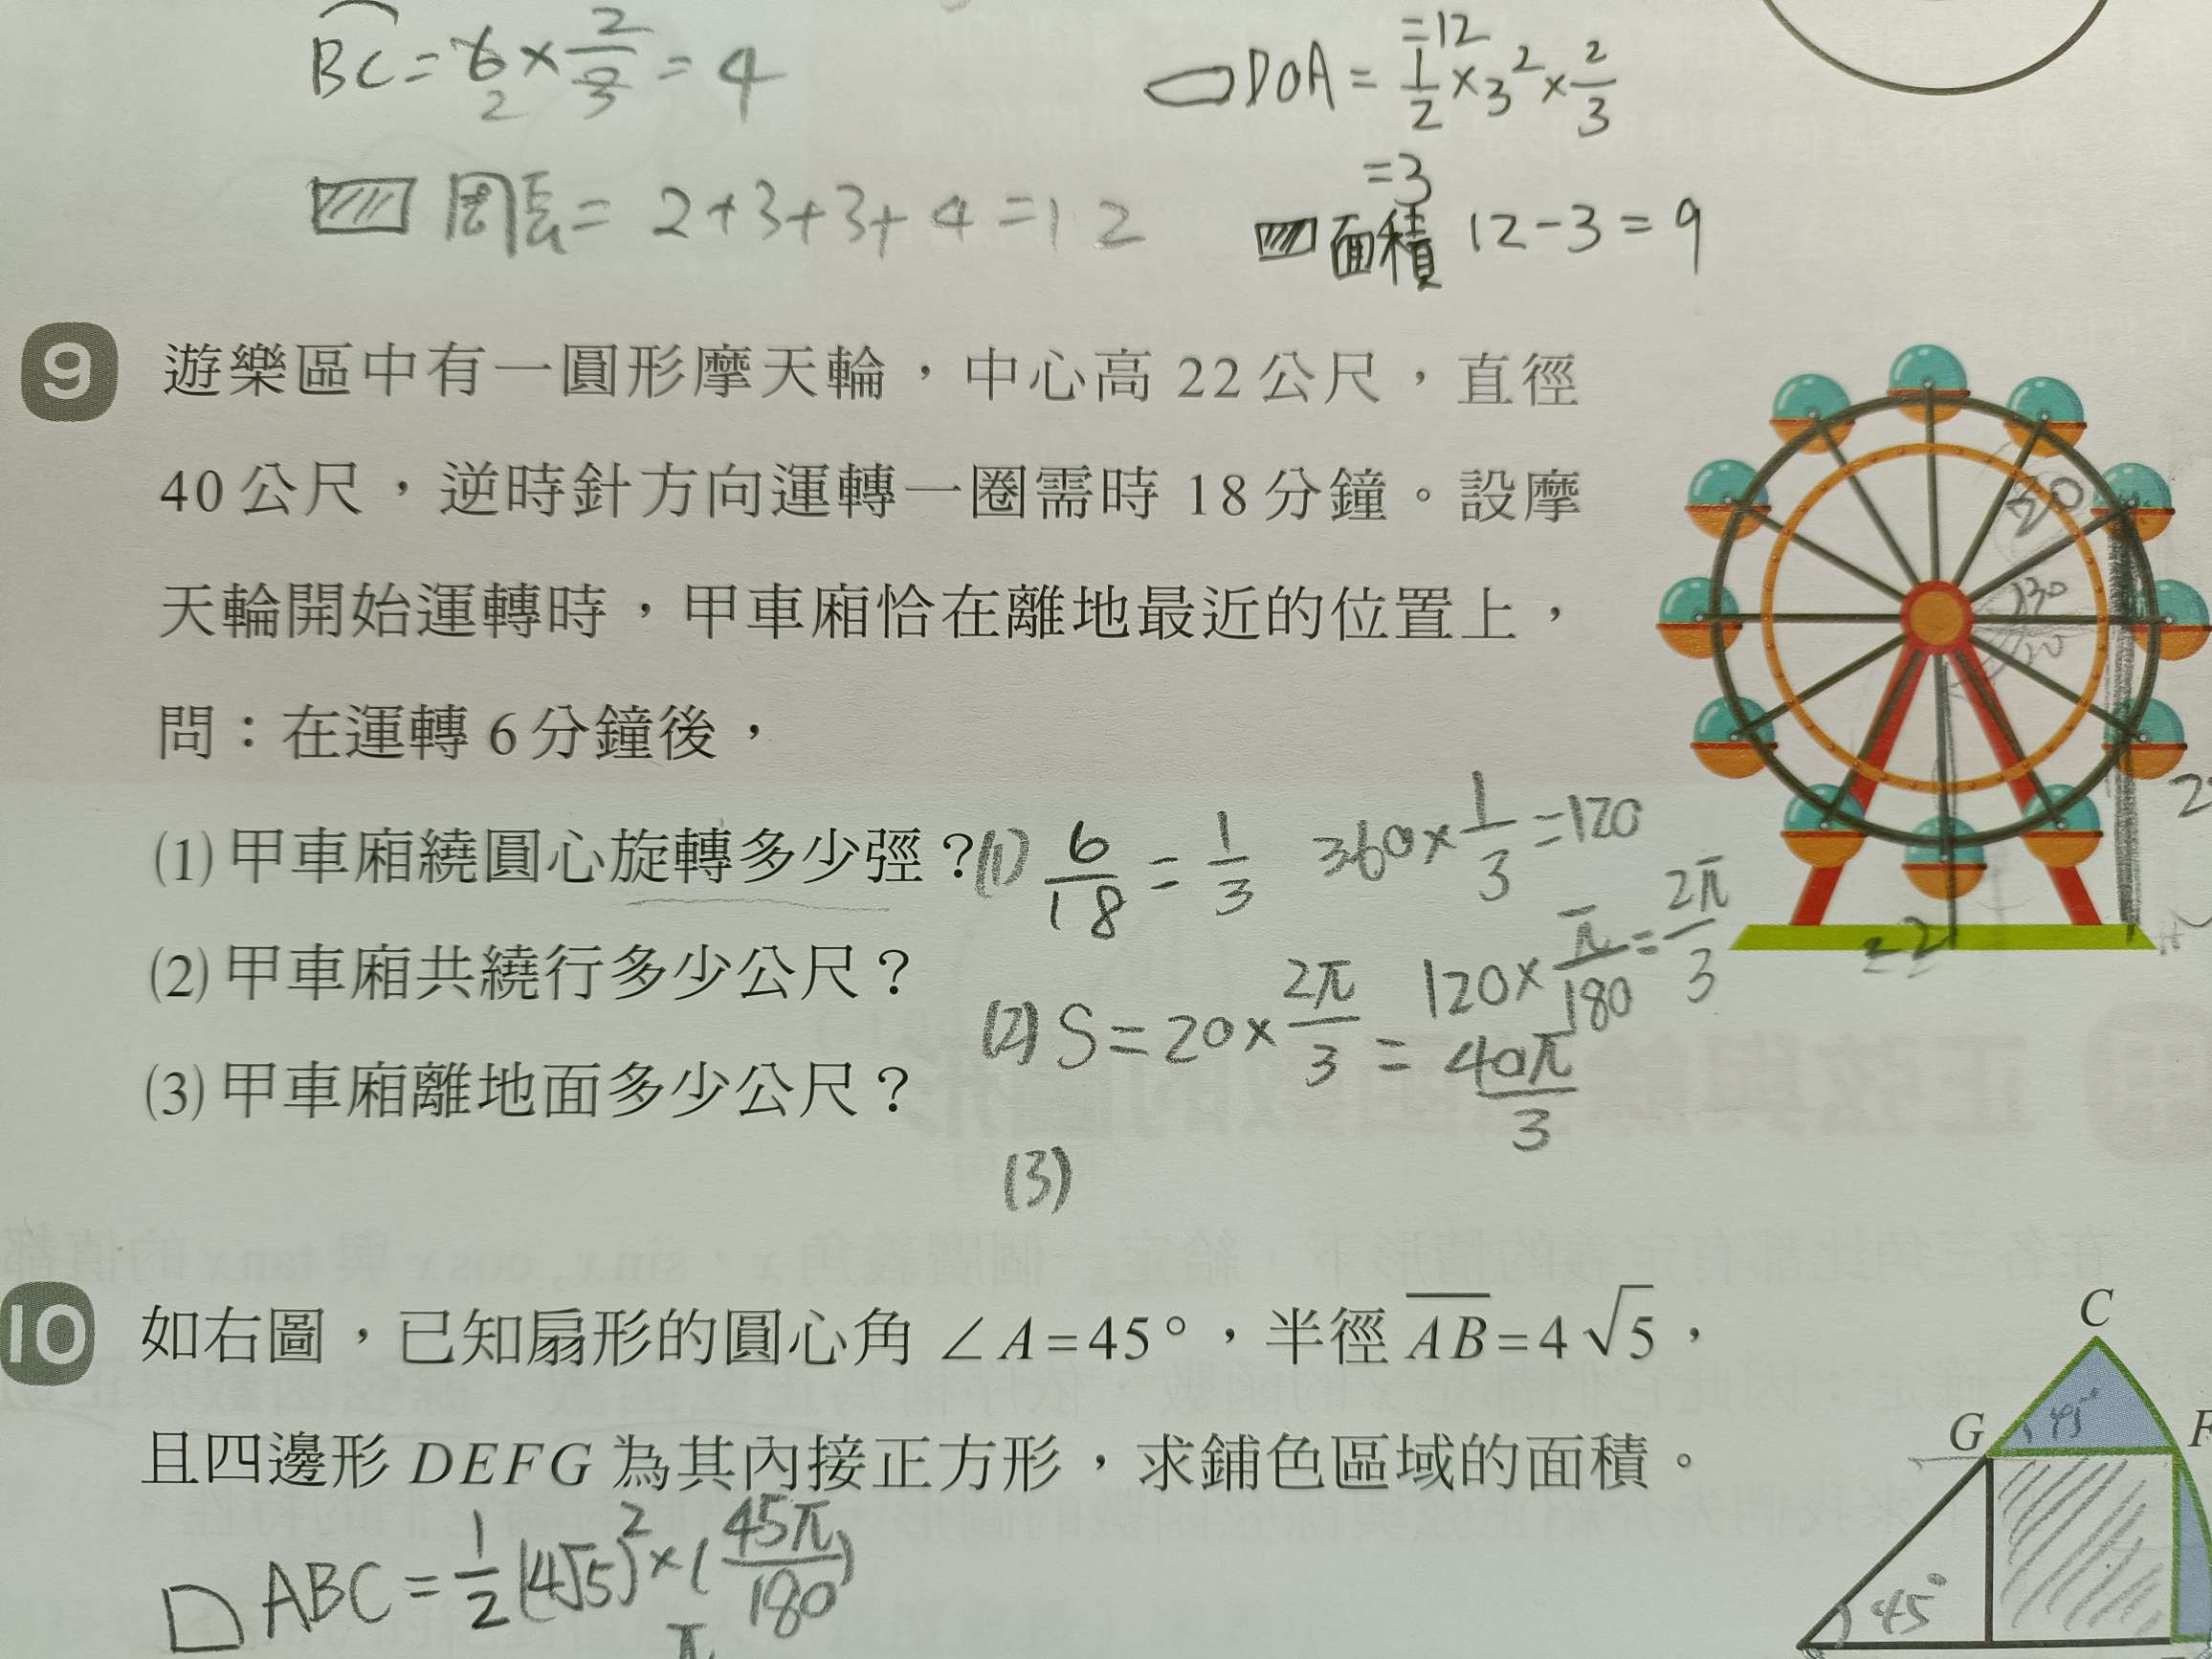 BC = 6 × 2/3 = 4
2
周長 = 2+3+3+4 = 12
=12
DOA = 1/2 × 3² × 2/3
=3
面積 12-3=9
9 遊樂區中有一圓形摩天輪，中心高 22 公尺，直徑
40 公尺，逆時針方向運轉一圈需時 18 分鐘。設摩
天輪開始運轉時，甲車廂恰在離地最近的位置上，
問：在運轉 6 分鐘後，
(1) 甲車廂繞圓心旋轉多少弳？
(2) 甲車廂共繞行多少公尺？
(3) 甲車廂離地面多少公尺？
(1) 6/18 = 1/3 360 × 1/3 = 120
120 × π/180 = 2π/3
(2) S = 20 × 2π/3 = 40π/3
(3)
22
10 如右圖，已知扇形的圓心角 ∠A=45°，半徑 AB=4√5，
且四邊形 DEFG 為其內接正方形，求鋪色區域的面積。
ABC = 1/2 (4√5)² × (45π/180)
π
C
G
F
45°
45°